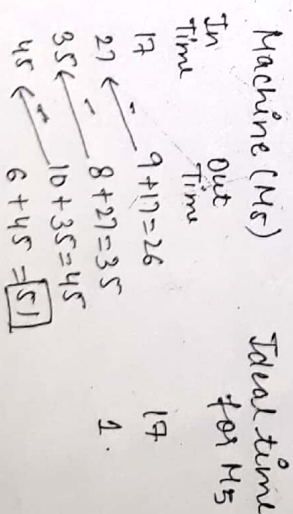 Machine (M5) Ideal time
In Out for M5
Time Time
17 9+17=26 17
27 8+27=35 1.
35 10+35=45
45 6+45=51